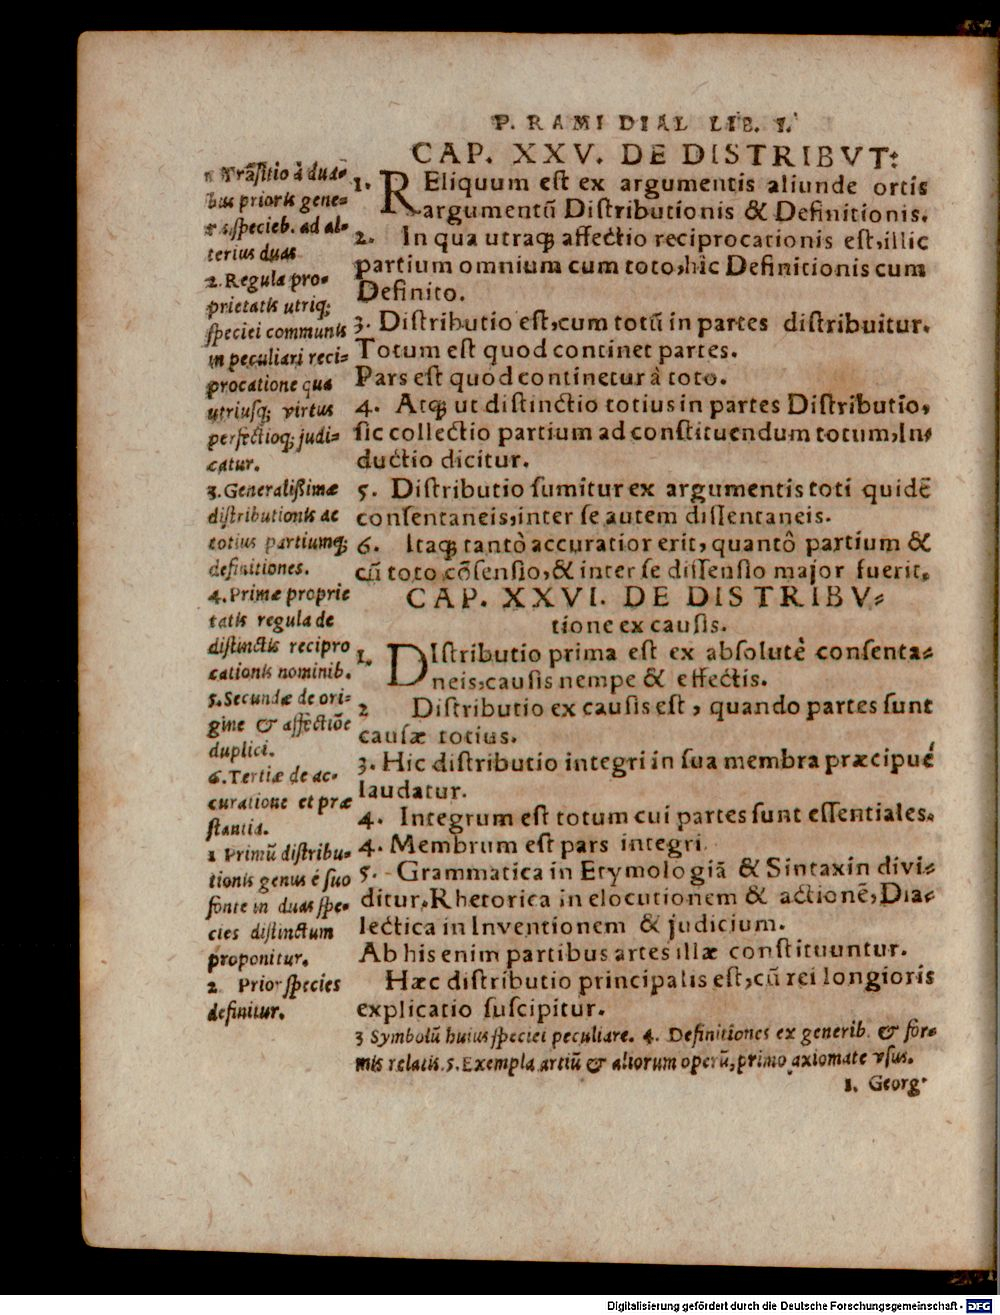 P. RAMI DIAL LIB. I.
CAP. XXV. DE DISTRIBVT:
1. REliquum est ex argumentis aliunde ortis
argumentū Distributionis & Definitionis.
2. In qua utraq; affectio reciprocationis est, illic
partium omnium cum toto, hîc Definitionis cum
Definito.
3. Distributio est, cum totū in partes distribuitur.
Totum est quod continet partes.
Pars est quod continetur à toto.
4. Atq; ut distinctio totius in partes Distributio,
sic collectio partium ad constituendum totum, In-
ductio dicitur.
5. Distributio sumitur ex argumentis toti quidē
consentaneis, inter se autem dissentaneis.
6. Itaq; tantò accuratior erit, quantò partium &
cū toto cōsensio, & inter se dissensio major fuerit.
CAP. XXVI. DE DISTRIBV-
tione ex causis.
1. DIstributio prima est ex absolutè consenta-
neis, causis nempe & effectis.
2 Distributio ex causis est, quando partes sunt
causæ totius.
3. Hic distributio integri in sua membra præcipuè
laudatur.
4. Integrum est totum cui partes sunt essentiales.
4. Membrum est pars integri.
5. Grammatica in Etymologiā & Sintaxin divi-
ditur, Rhetorica in elocutionem & actionē, Dia-
lectica in Inventionem & judicium.
Ab his enim partibus artes illæ constituuntur.
Hæc distributio principalis est, cū rei longioris
explicatio suscipitur.
1 Trāsitio à dua-
bus prioris gene-
ris specieb. ad al-
terius duas
2. Regula pro-
prietatis utriq;
speciei communis
in peculiari reci-
procatione qua
utriusq; virtus
perfectioq; judi-
catur.
3. Generalißimæ
distributionis ac
totius partiumq;
definitiones.
4. Primæ proprie
tatis regula de
distinctis recipro
cationis nominib.
5. Secundæ de ori-
gine & affectiōe
duplici.
6. Tertiæ de ac-
curatione et præ
stantia.
1 Primū distribu-
tionis genus é suo
fonte in duas spe-
cies distinctum
proponitur.
2. Prior species
definitur.
3 Symbolū huius speciei peculiare. 4. Definitiones ex generib. & for-
mis relatis. 5. Exempla artiū & aliorum operū, primo axiomate vsus.
1. Georg
Digitalisierung gefördert durch die Deutsche Forschungsgemeinschaft - DFG